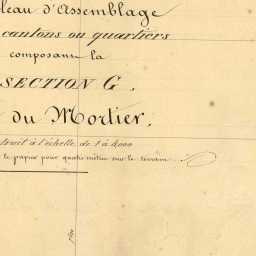 leau d'Assemblage
cantons ou quartiers
composans la
SECTION G.
du Mortier.
truit à l'échelle de 1 à 4000
le papier pour quatre mètres sur le terrain.